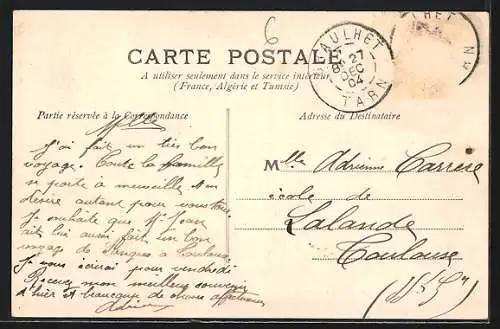 6
CARTE POSTALE
A utiliser seulement dans le service intérieur
(France, Algérie et Tunisie)
GRAULHET
27
DEC
04
TARN
LHET
RN
Partie réservée à la Correspondance
Adresse du Destinataire
Mlle
J'ai fait un très bon
voyage. Toute la famille
se porte à merveille & on
désire autant pour vous tous.
Je souhaite que Mr Jean
ait lui aussi fait un bon
voyage de à Toulouse
Je vous écrirai pour vendredi
Recevez mon meilleur souvenir
d'hier et beaucoup de choses affectueuses
Mlle Adrienne Carrere
école de
Lalande
Toulouse
(Hte Gne)